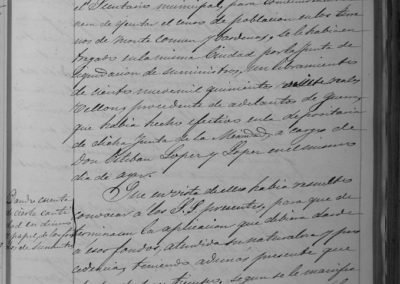 el Secretario municipal, para
de ejecutar el censo de poblacion en los
nos de monte Comun y Bardenas, se le habian en
tregado en la misma Ciudad por la Junta de
liquidacion de suministros, un libramiento
de ciento nueve mil quinientos reales
Vellons procedente de adelantos de guerra,
que habia hecho efectivo en la depositaria
de dicha Junta de la Merindad, a cargo de
Don Esteban Lopez y Lopez en el mismo
dia de ayer.
Que en vista de ello habia resuelto
convocar a los S.S. presentes, para que de
terminasen la aplicacion que debiera darse
a esos fondos, atendida su naturaleza y pro
cedencia, teniendo ademas presente que
tiempo, segun se le manifes
Dando cuenta
de cierta canti
dad en dinero
y papel de
de suministros